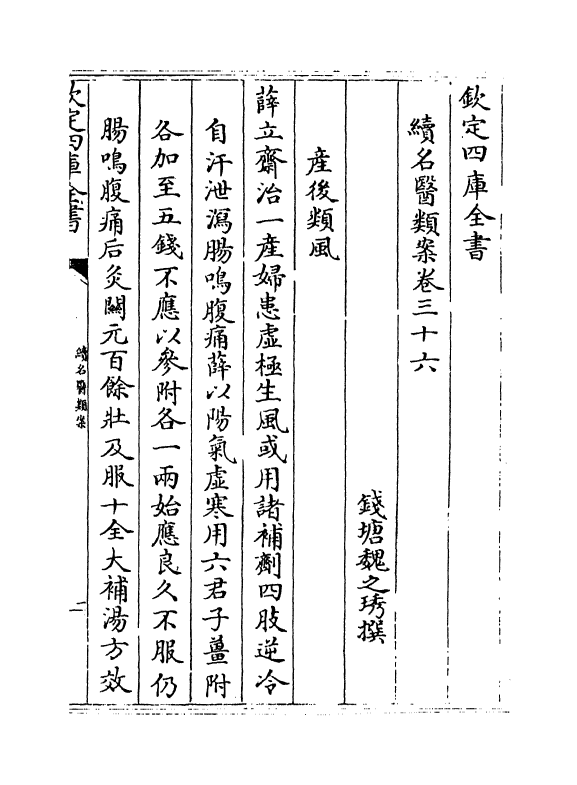 欽定四庫全書
續名醫類案卷三十六
錢塘魏之琇撰
產後類風
薛立齋治一產婦患虛極生風或用諸補劑四肢逆冷
自汗泄瀉腸鳴腹痛薛以陽氣虛寒用六君子薑附
各加至五錢不應以參附各一兩始應良久不服仍
腸鳴腹痛后灸關元百餘壯及服十全大補湯方效
欽定四庫全書
續名醫類案